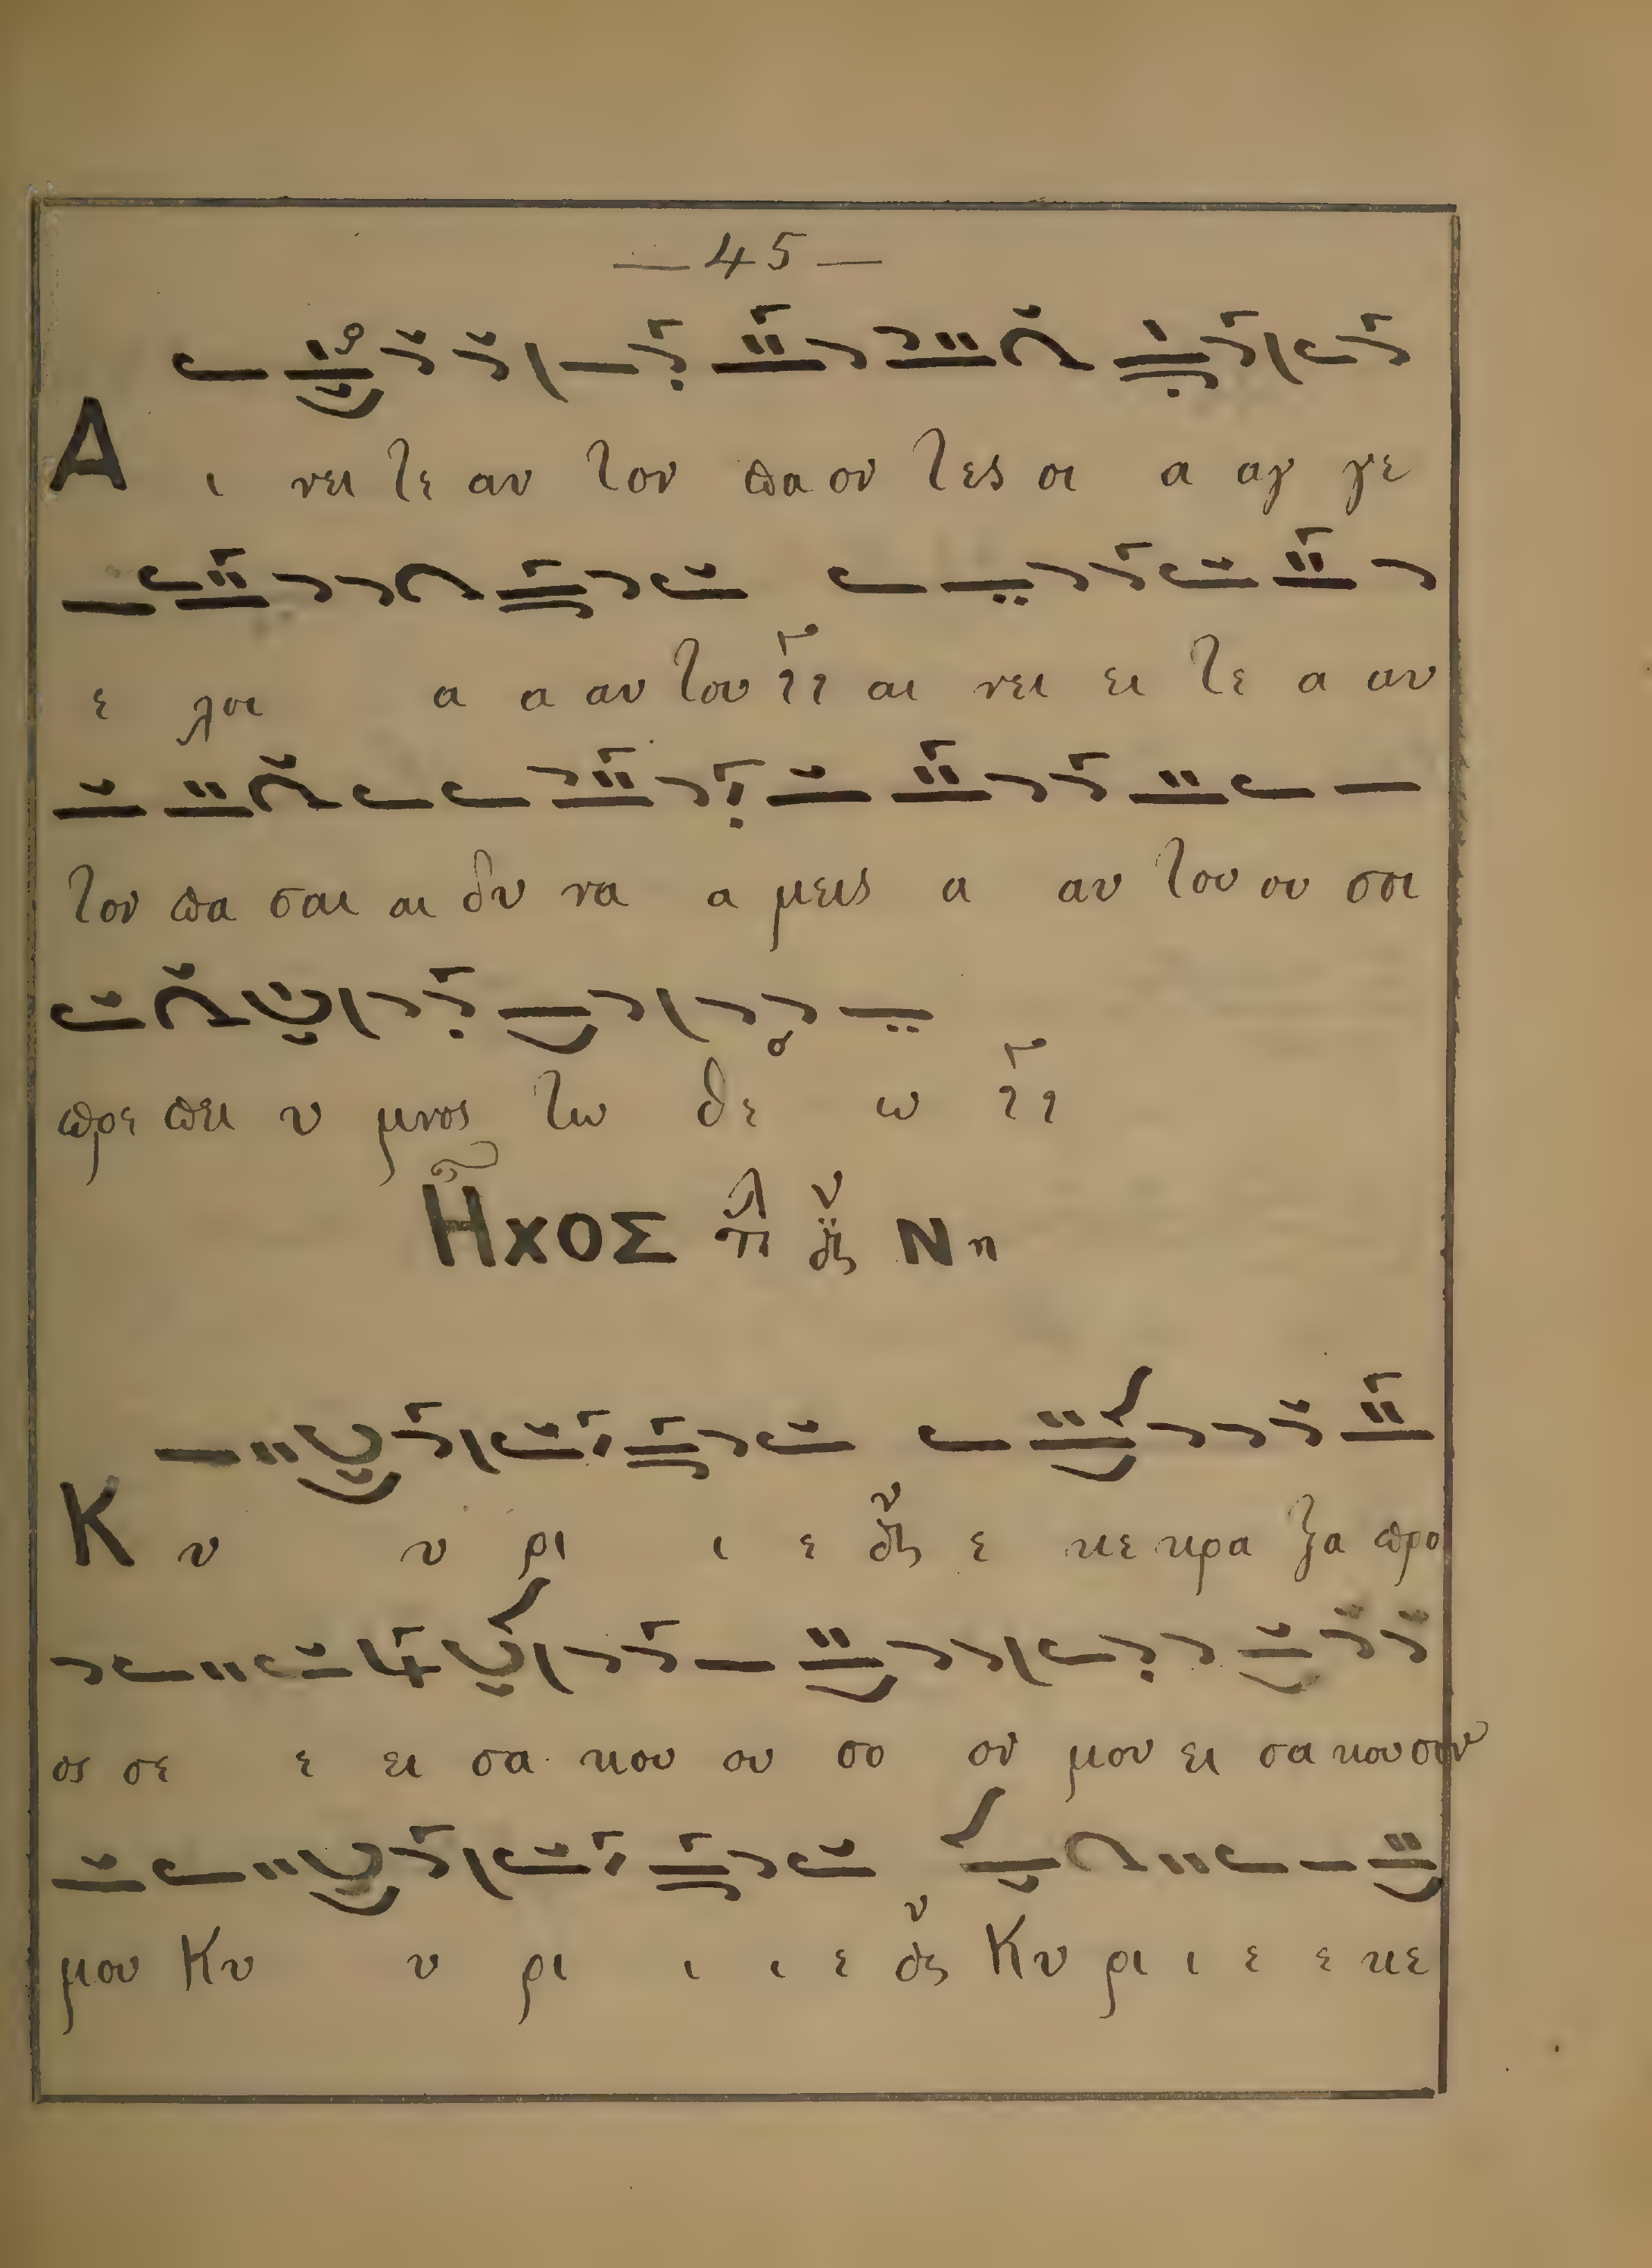 — 45 —
Α ι νει τε αυ τον πα ον τες οι α αγ γε
ε λοι α α αυ του αι νει ει τε α αυ
τον πα σαι αι δυ να α μεις α αυ του ου σοι
πρε πει υ μνος τω θε ω
Ἦχος πλ δ Νη
Κυ υ ρι ι ε ε κε κρα ξα προ
ος σε ε ει σα κου ου σο ον μου ει σα κουσον
μου Κυ υ ρι ι ι ε Κυ ρι ι ε ε κε